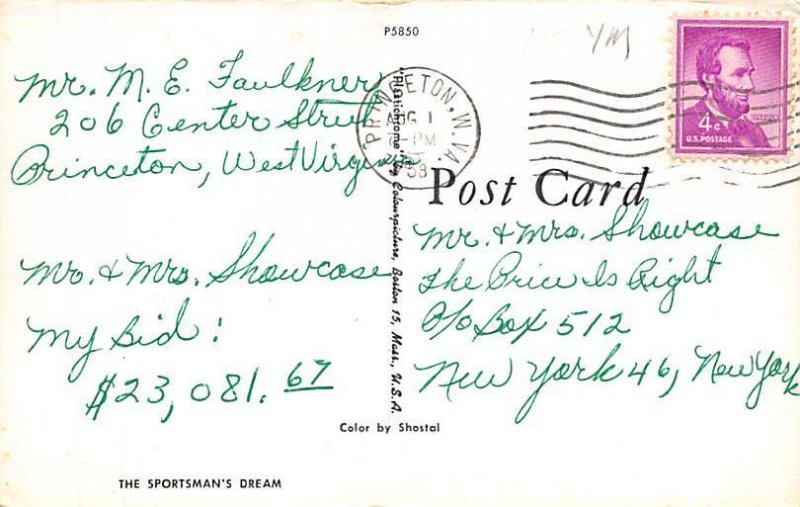 P5850
Mr. M. E. Faulkner
206 Center Street
Princeton, West Virginia
Mr. & Mrs. Showcase
My Bid:
$23,081.67
THE SPORTSMAN'S DREAM
"Plastichrome" by Colourpicture, Boston 15, Mass., U.S.A.
Color by Shostal
PRINCETON, W. VA.
AUG 1
PM
YM
4¢
U.S. POSTAGE
Post Card
Mr. & Mrs. Showcase
The Price Is Right
P/o Box 512
New York 46, New York